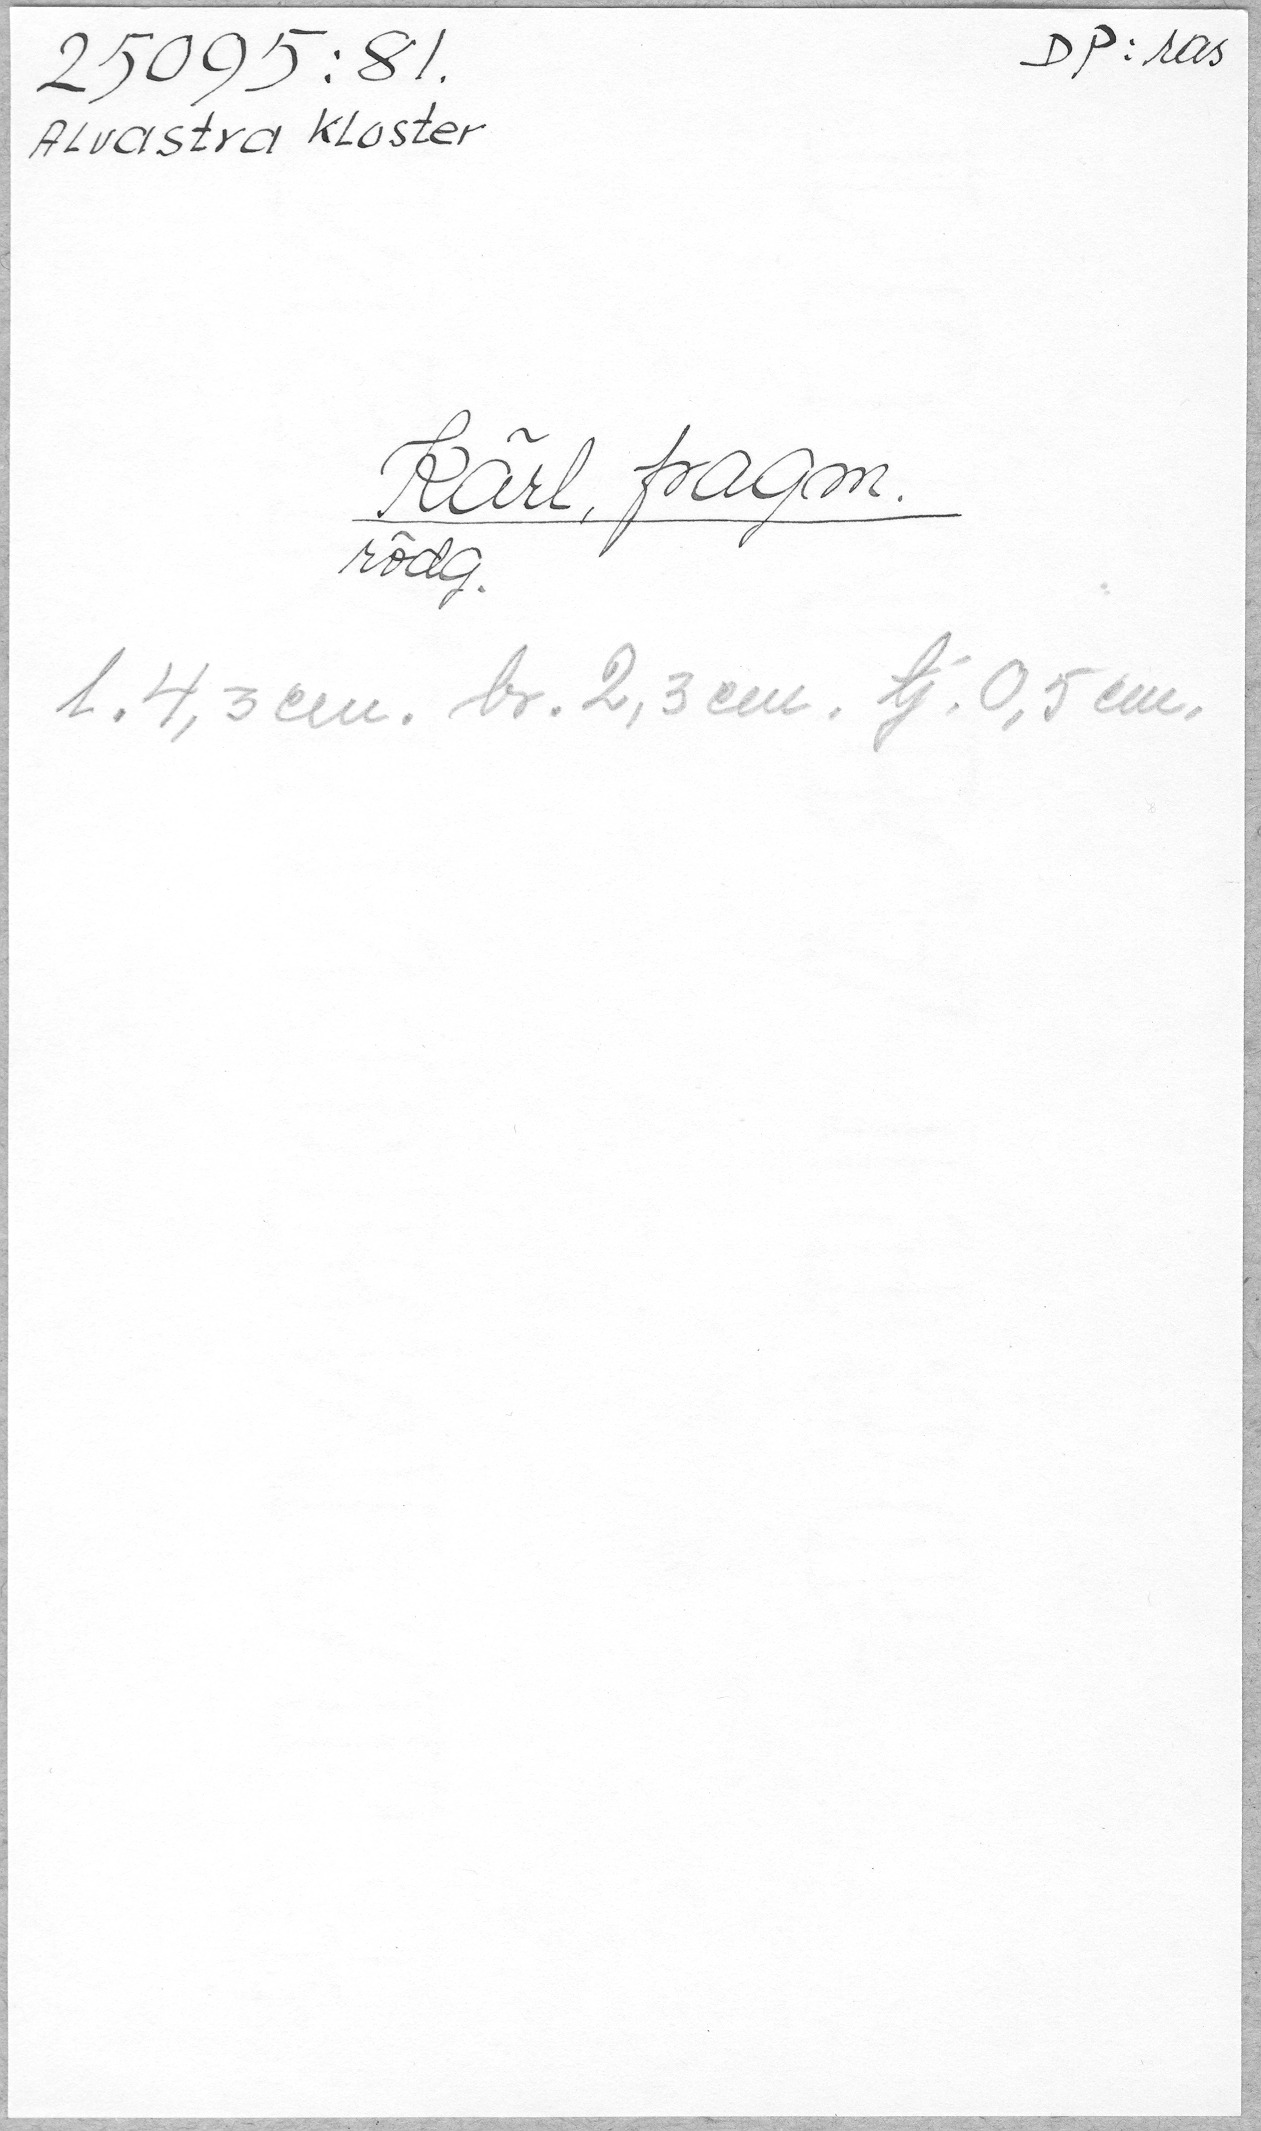 25095:81.
DP: ras
Alvastra kloster
Kärl, fragm.
rödg.
l. 4,3 cm. br. 2,3 cm. tj. 0,5 cm.